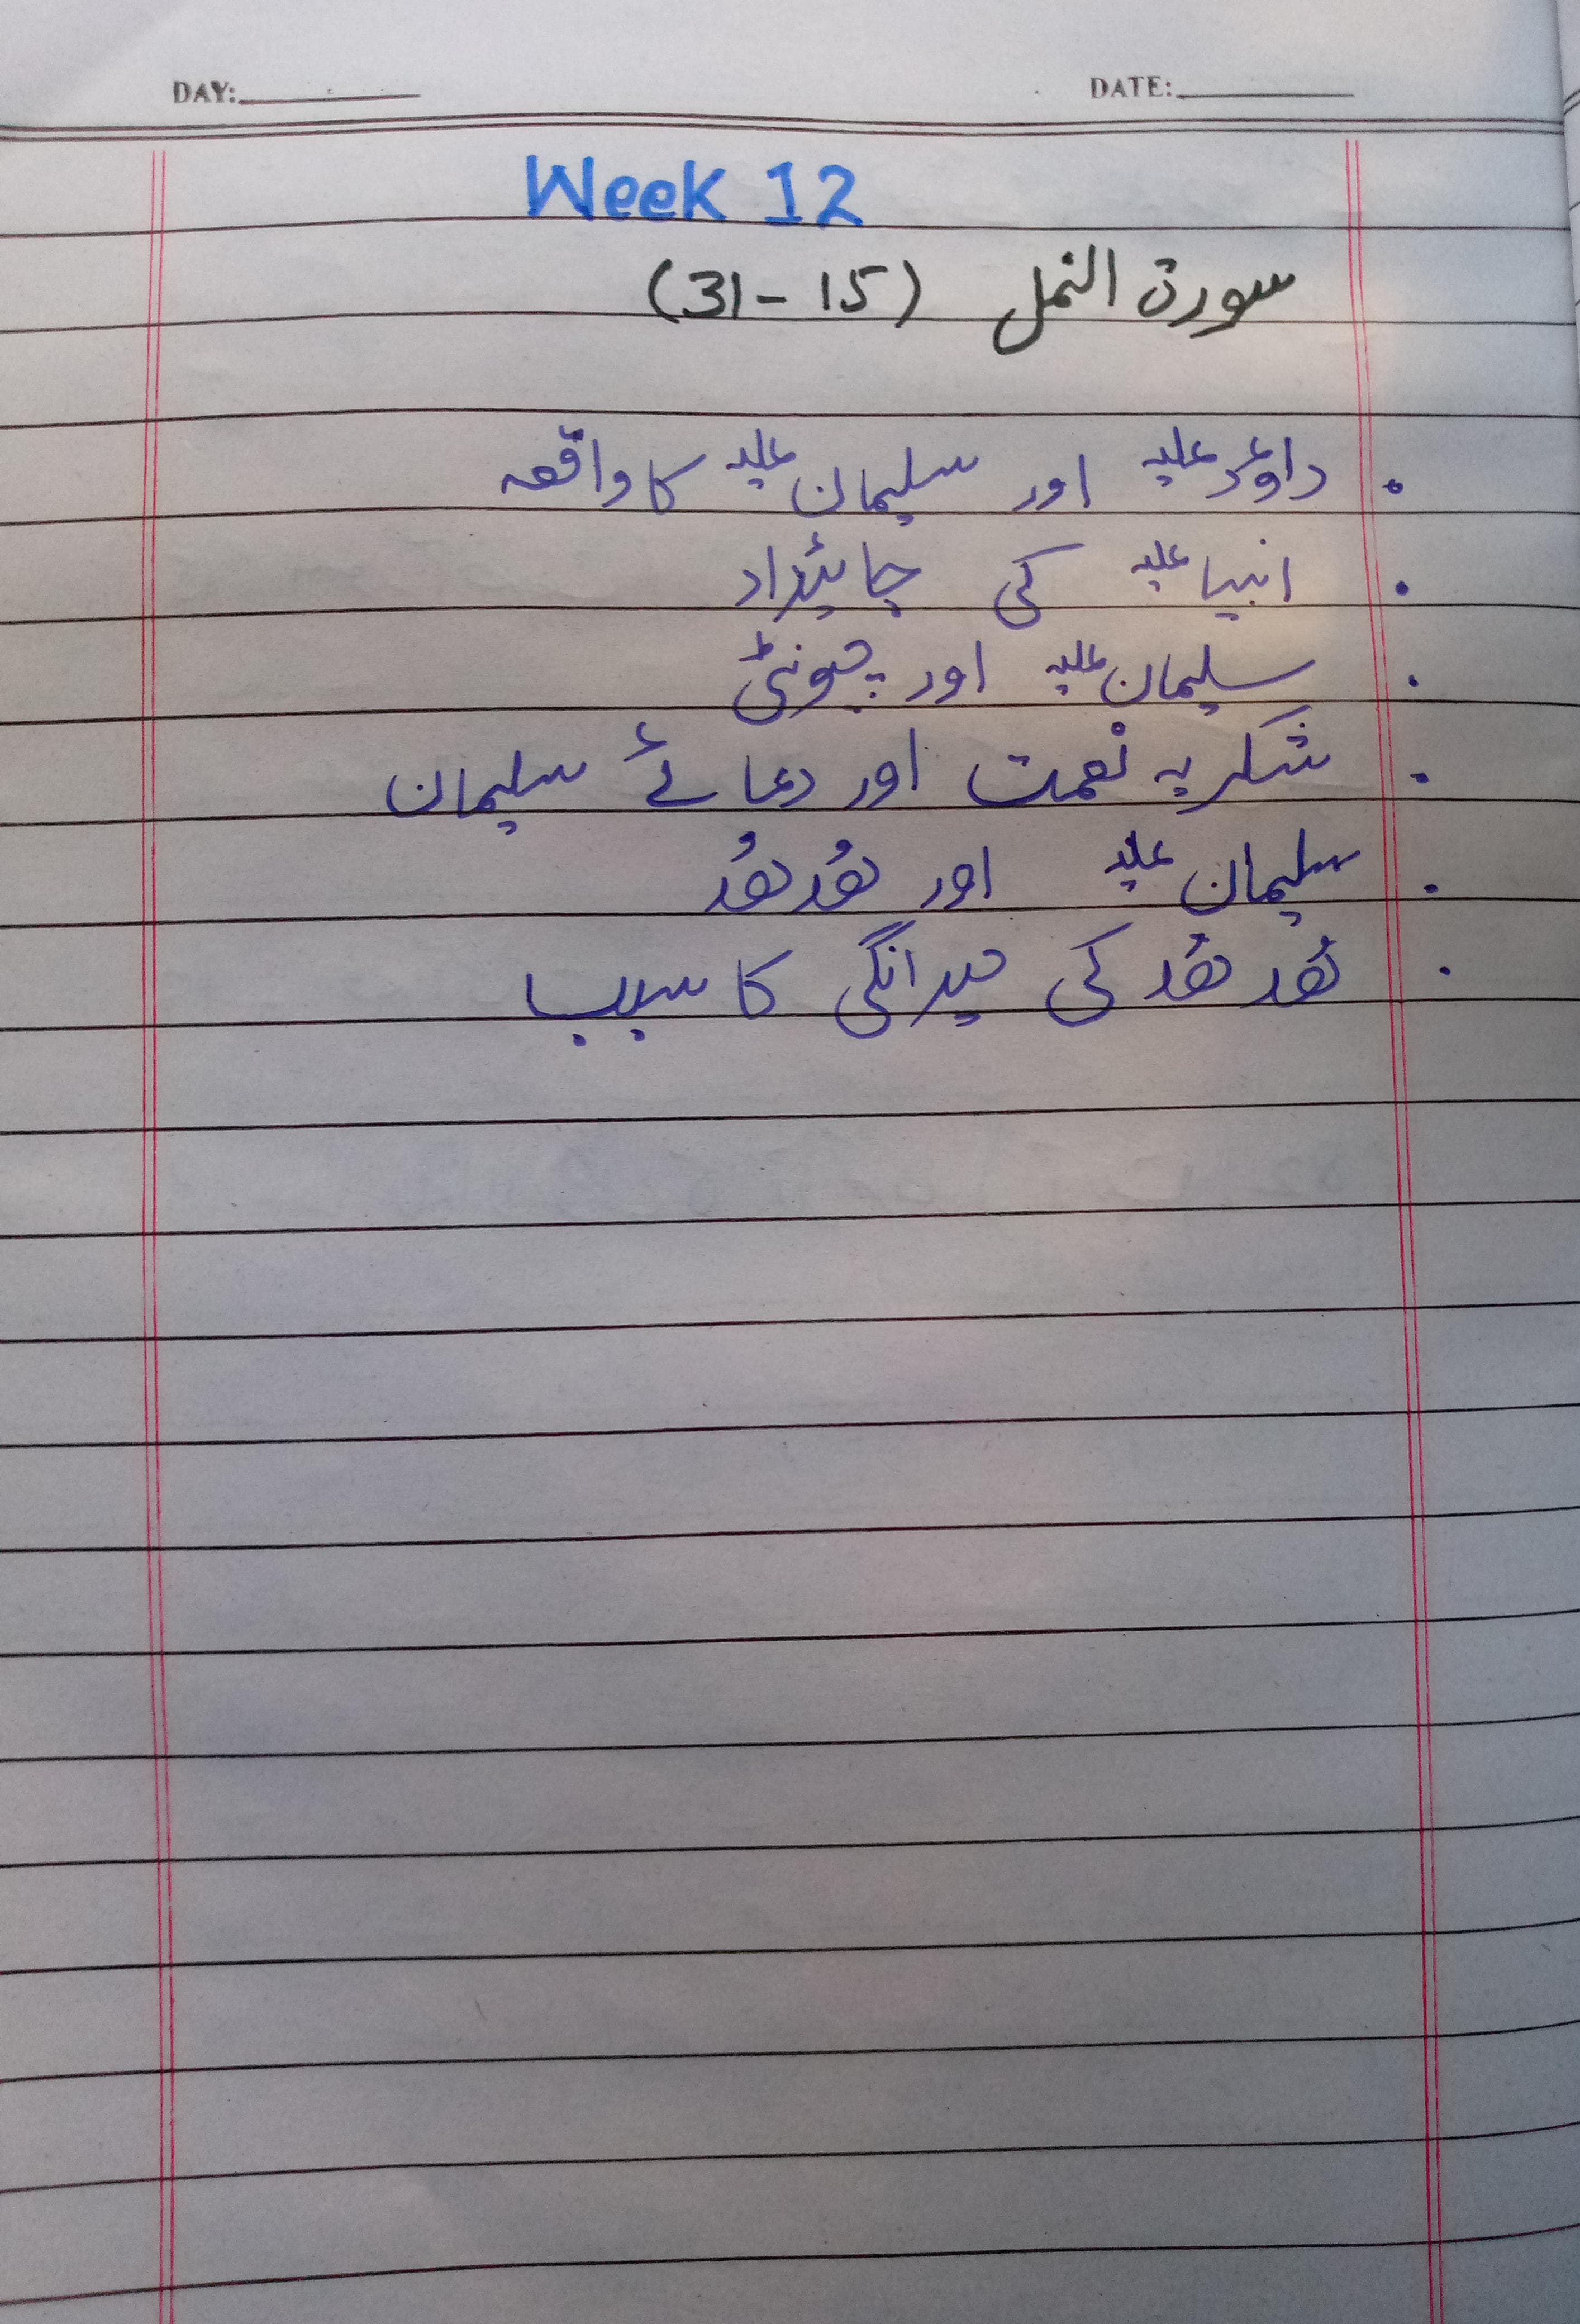 DAY: DATE:
Week 12
سورة النمل (15 - 31)
. داوٗد علیہ اور سلیمان علیہ کا واقعہ
. انبیا علیہ کی جائیداد
. سلیمان علیہ اور چیونٹی
. شکریہ نعمت اور دعائے سلیمان
. سلیمان علیہ اور ھُدھُد
. ھُدھُد کی حیرانگی کا سبب